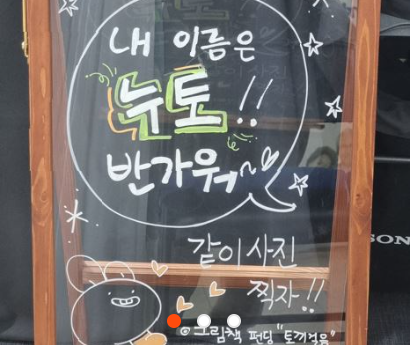 내 이름은
누토!!
반가워~
같이 사진
찍자!!
@그림책 펀딩 "토끼걱음"
SON